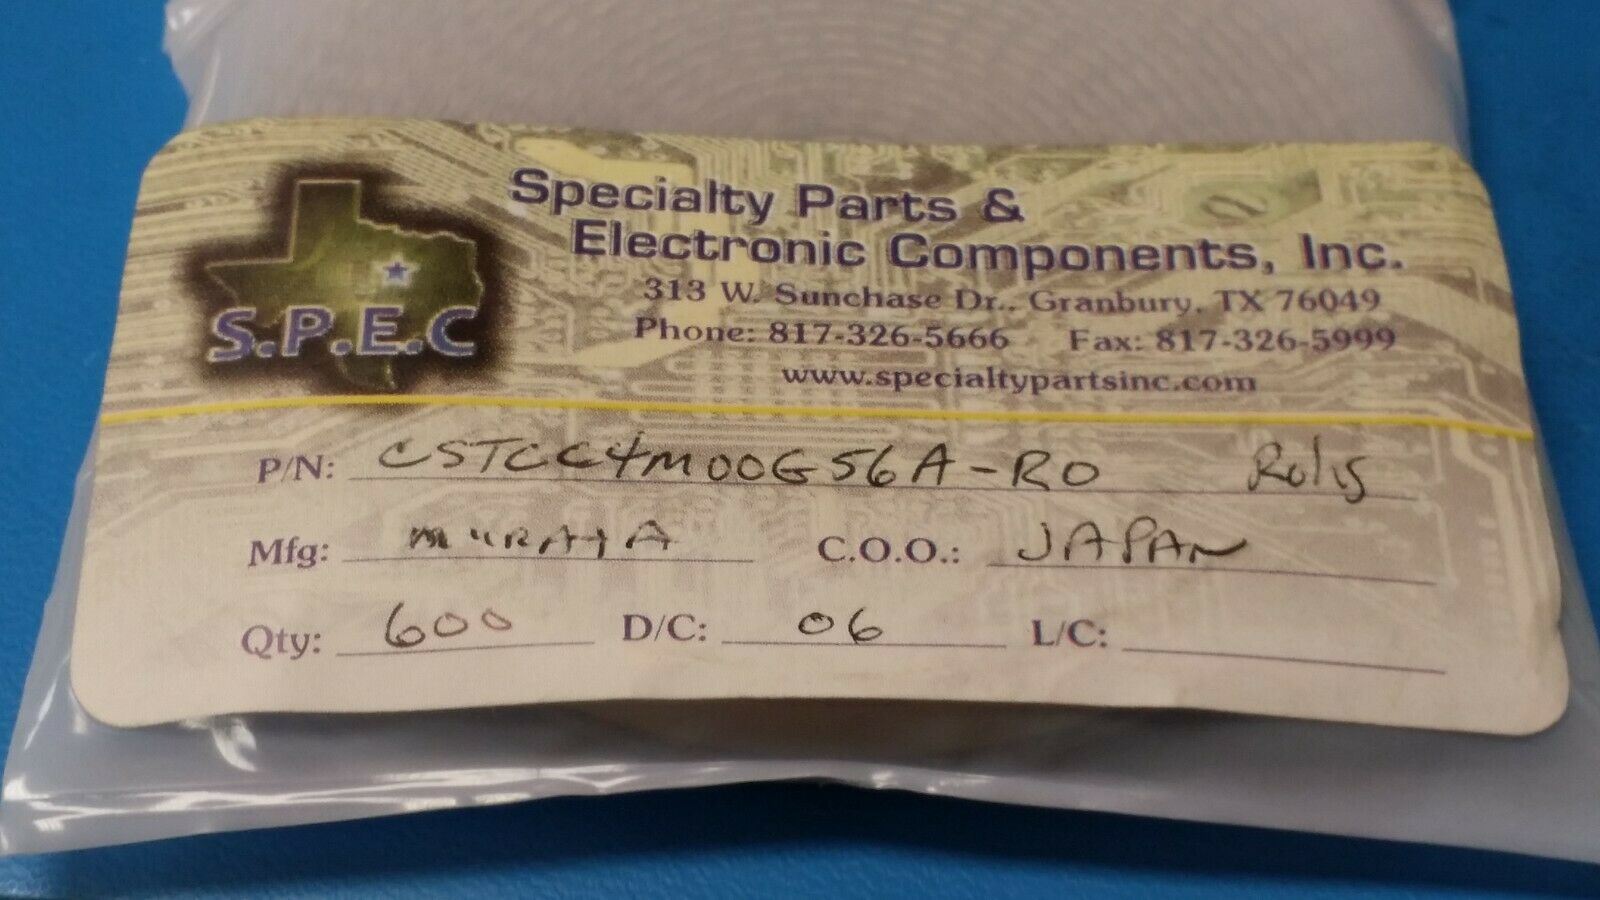 Specialty Parts &
Electronic Components, Inc.
S.P.E.C
313 W. Sunchase Dr., Granbury, TX 76049
Phone: 817-326-5666 Fax: 817-326-5999
www.specialtypartsinc.com
P/N: CSTCC4M00G56A-R0 RoHS
Mfg: MURATA C.O.O.: JAPAN
Qty: 600 D/C: 06 L/C: